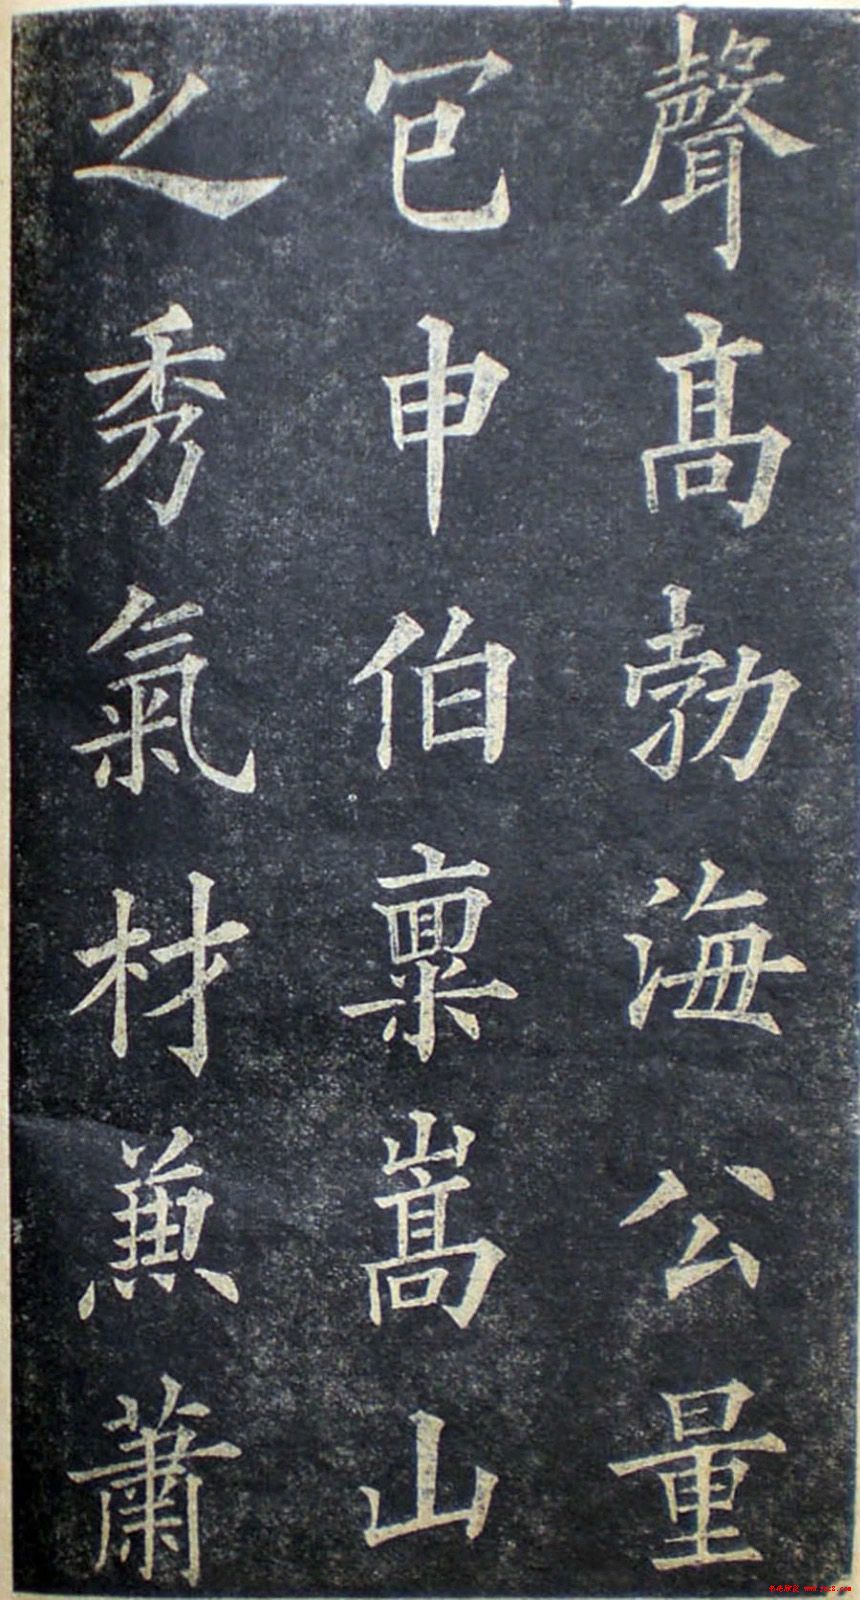 聲高勃海公量
包申伯稟嵩山
之秀氣材兼蕭